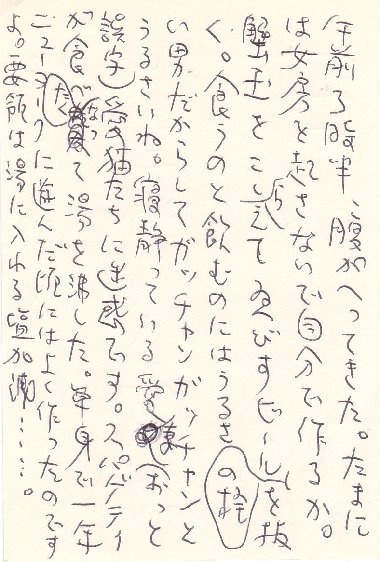 午前3時半、腹がへってきた。たまに
は女房を起さないで自分で作るか。
蟹玉をこしらえてゑびすビールの栓を抜
く。食うのと飲むのにはうるさ
い男だからしてガッチャンガッチャンと
うるさいね。寝静っている愛妻(おっと
誤字)愛猫たちに迷惑です。スパゲティ
が食べたくなって湯を沸した。単身で一年
ニューヨークに遊んだ頃にはよく作ったのです
よ。要領は湯に入れる塩加減……。